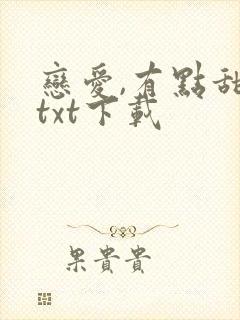 戀愛,有點甜
txt下載
果貴貴